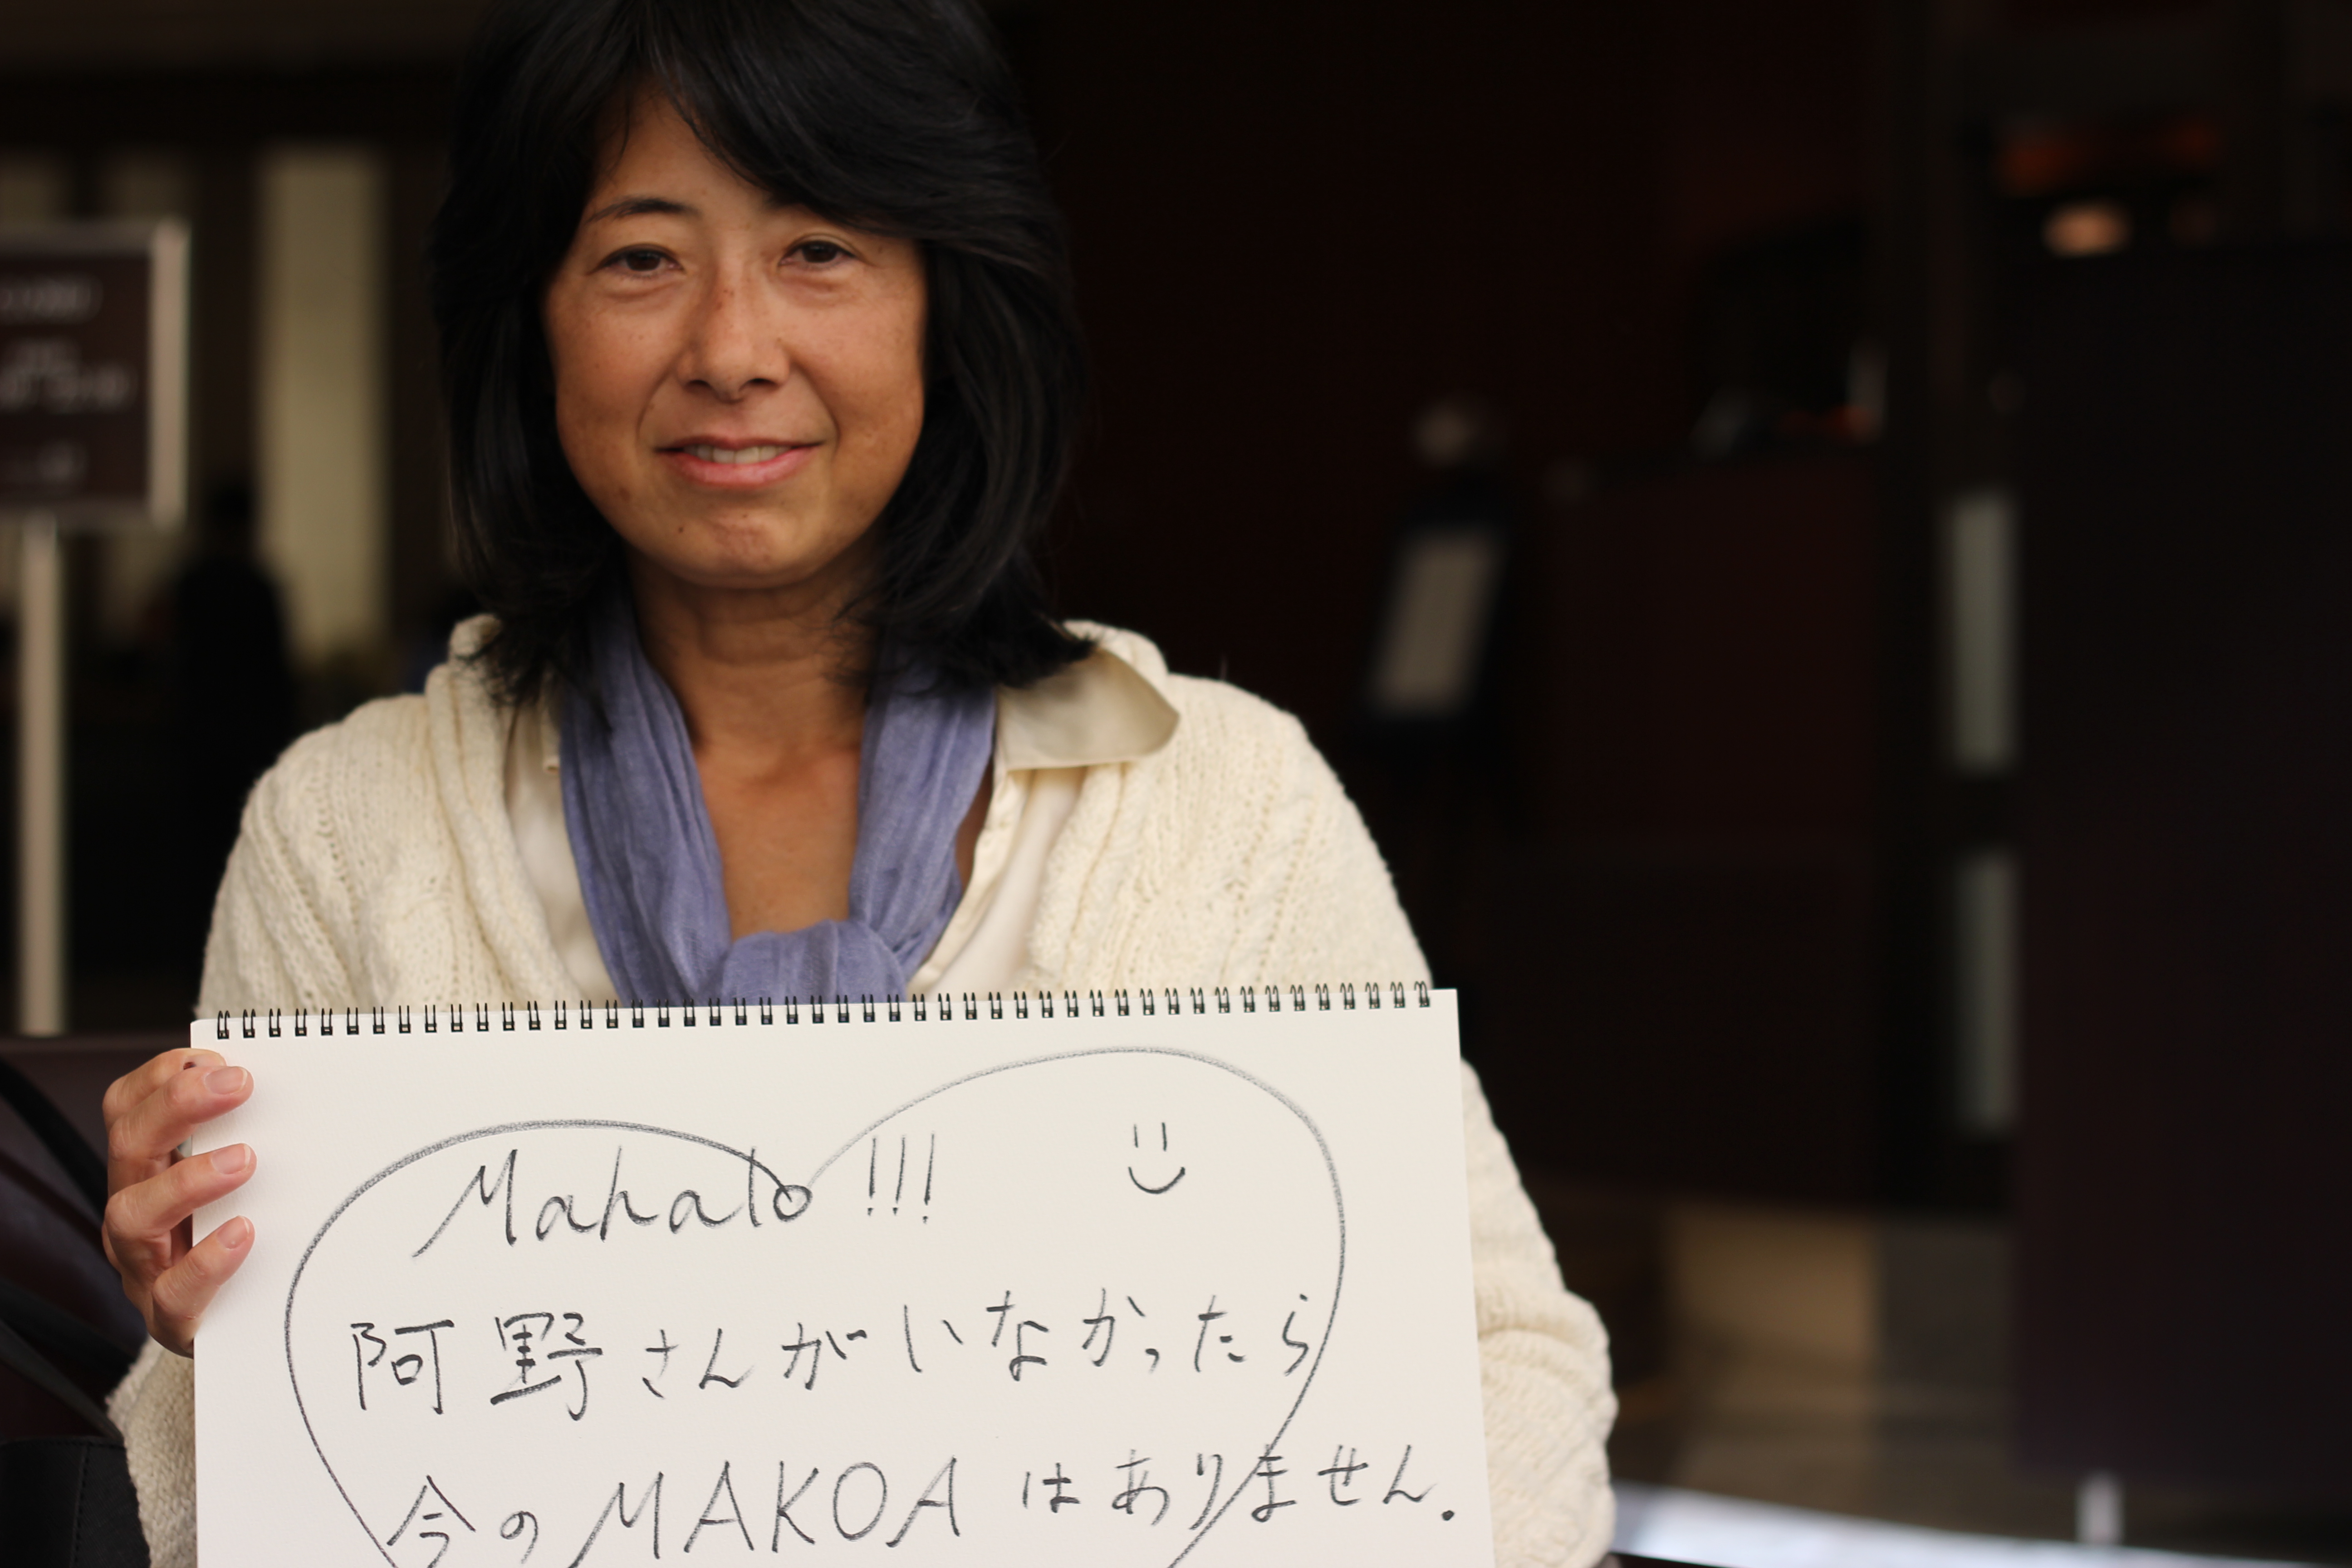 Mahalo!!!
阿野さんがいなかったら
今のMAKOAはありません.